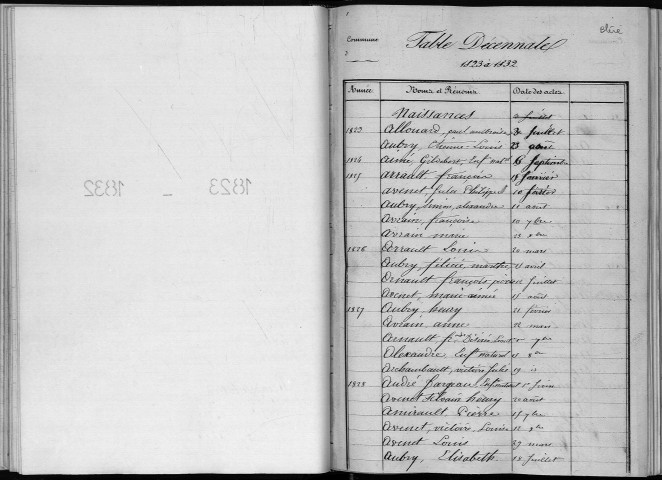 1823 - 1832
Commune
Table Décennale
1823 à 1832
Année. Noms et Prénoms Date des actes
Naissances juillet
1823 Allouard, paul ambroise juillet
Aubry Etienne-Louis 23 août
1824 Aimé Gildebert, Enft nat 16 septemb
1825 Arrault françois 18 janvier
Avenet, Jules Philippe 10 février
Aubry, Simon, alexandre 11 août
Avrain, françoise 10 7bre
Avrain marie 8bre
1826 Arrault Louis 20 mars
Aubry, félicie, marthe avril
Arnault françois, pierre juillet
Avenet, marie-aimée 15 août
1827 Aubry, henry 21 février
Avrain, anne 12 mars
Arnault Désiré Louis 7bre
Alexandre Enft naturel 8bre
Archambault, victoire Julie 19 id
1828 André fargeau Enft naturel février
Avenet Silvain henry 20 août
Amirault, Pierre 15 7bre
Avenet, victoire, Louise 12 8bre
Avenet Louis 27 mars
Aubry, Elisabeth 18 juillet